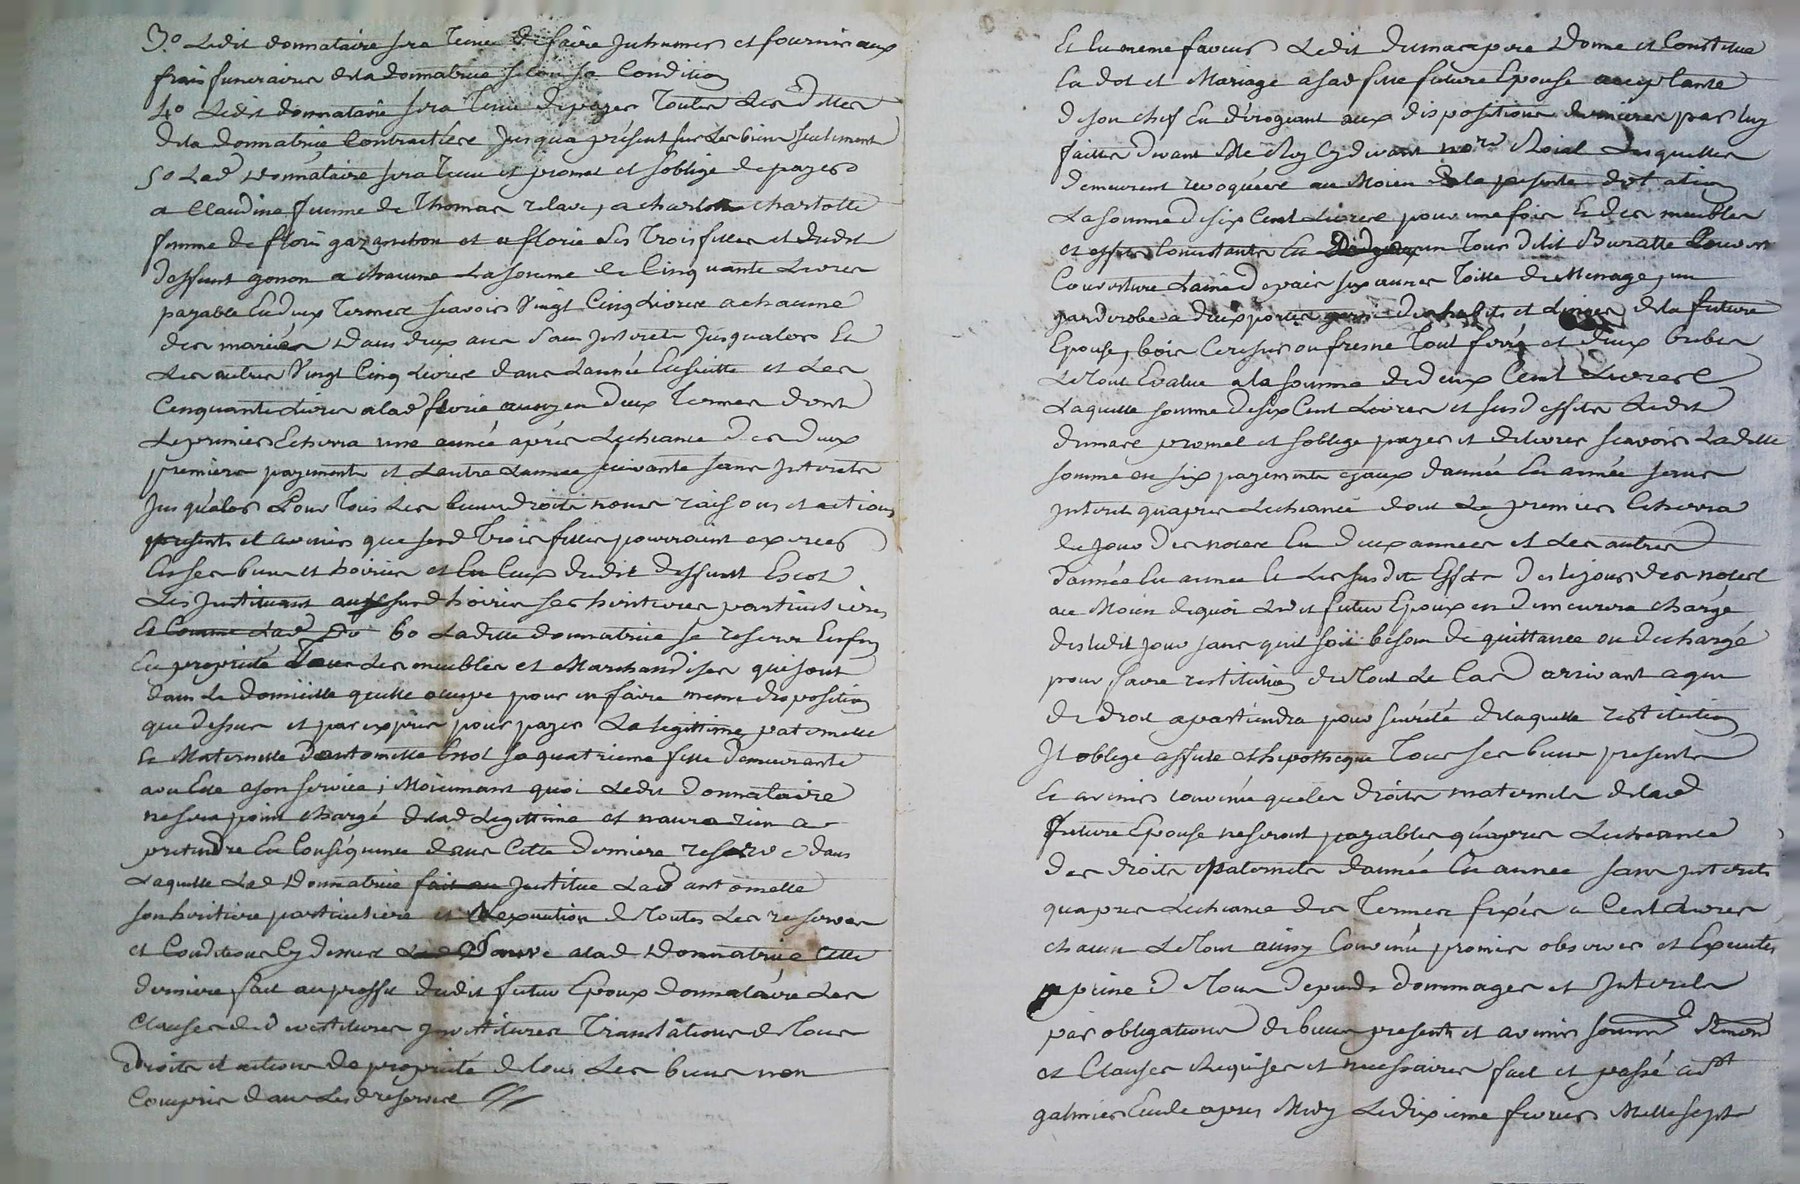 3o Ledit donnataire sera tenu de faire inhumer et fournir aux
frais funeraires de la donnatrice selon sa Condition
4o Ledit donnataire sera tenu de payer toutes les dettes
de la donnatrice Contractées jusqua présent sur les biens seulement
5o Lad donnataire sera tenu et promet et s'oblige de payer
a Claudine femme de Thomas relave, a charlotte
femme de floris gazanchon et a florie ses trois filles et dudit
deffunt gonon a chacune La somme de Cinquante Livres
payable En deux termes scavoir Vingt Cinq Livres a chacune
des mariées dans deux ans sans interets jusqualors Et
Les autres Vingt Cinq Livres dans L'année Ensuitte et Les
Cinquante Livres alad florie aussy en deux termes dont
Le premier Echerra une année après Lecheance des deux
premiers payements et L'autre L'année suivante sans interets
jusqualors Pour tous Les biens droits noms raisons et actions
presents et avenir que sesd trois filles pourraient exercer
En ses biens et hoiries et En Ceux dudit deffunt Escot
Les instituant auxsusd hoiries ses heritieres particulieres
Et Comme Lad 6o Ladite donnatrice se reserve Enfin
En propriété tous Les meubles et Marchandises qui sont
dans Le domicille qu'elle occupe pour en faire meme disposition
que dessus et par exprès pour payer La legittime paternelle
Et Maternelle D'antoinette Escot sa quatrieme fille demeurante
avec Elle a son service; Moienant quoi Ledit Donnataire
ne sera point chargé de lad Legittime et n'aura rien a
pretendre En Consequence dans Cette derniere reserve dans
Laquelle Lad Donnatrice fait au institue Lad antoinette
son heritiere particuliere et Lexecution de toutes Les reserves
et Conditions Cy dessus alad Donnatrice Cette
derniere fait au proffit dudit futur Epoux donnataire Les
Clauses de devestitures investitures translations de tous
droits et actions de propriété de tous Les biens non
Compris dans Lesd reserves
Et En meme faveur Ledit dumas pere donne et Constitue
En dot et Mariage a sad fille future Epouse acceptante
de son chef En dérogeant aux dispositions dernieres par luy
faites devant Me Roy Cy devant nore Roial Lesquelles
demeurent revoquées au Moien de la presente dotation
La somme de six Cent Livres pour une fois Et des meubles
et effets Consistants En un tour de lit Buratte
Couverture Laine de pais six aunes toille de Menage, un
garderobe a deux portes garni des habits et Linges de la future
Epouse, bois Cerisier ou fresne tout ferré et deux brebis
Le tout Evalué a la somme de deux Cent Livres
Laquelle somme de six Cent Livres et susd effets Ledit
dumas promet et soblige payer et delivrer scavoir Ladite
somme en six payements egaux d'année En année sans
interet quapres Lecheance dont Le premier Echerra
du jour des noces En deux années et Les autres
d'année En année Et Les susdits Effets des le jour des noces
au Moien de quoi Ledit futur Epoux en demeurera chargé
des ledit jour sans quil soit besoin de quittance ou decharge
pour faire restitution du tout Le Cas arrivant a qui
de droit apartiendra pour sureté de laquelle restitution
Il oblige affecte et hipotheque tous ses biens presents
Et avenir convenu que les droits maternels de lad
future Epouse ne seront payables quapres Lecheance
des droits paternels d'année En année sans interets
quapres Lecheance des termes fixés a Cent Livres
chacun Le tout ainsy Convenu promis observer et Executer
a peine de tous depends dommages et interets
par obligations de biens presents et avenir
et Clauses Requises et necessaires fait et passé a St
galmier Etude apres Midy Le dixieme fevrier Mille sept